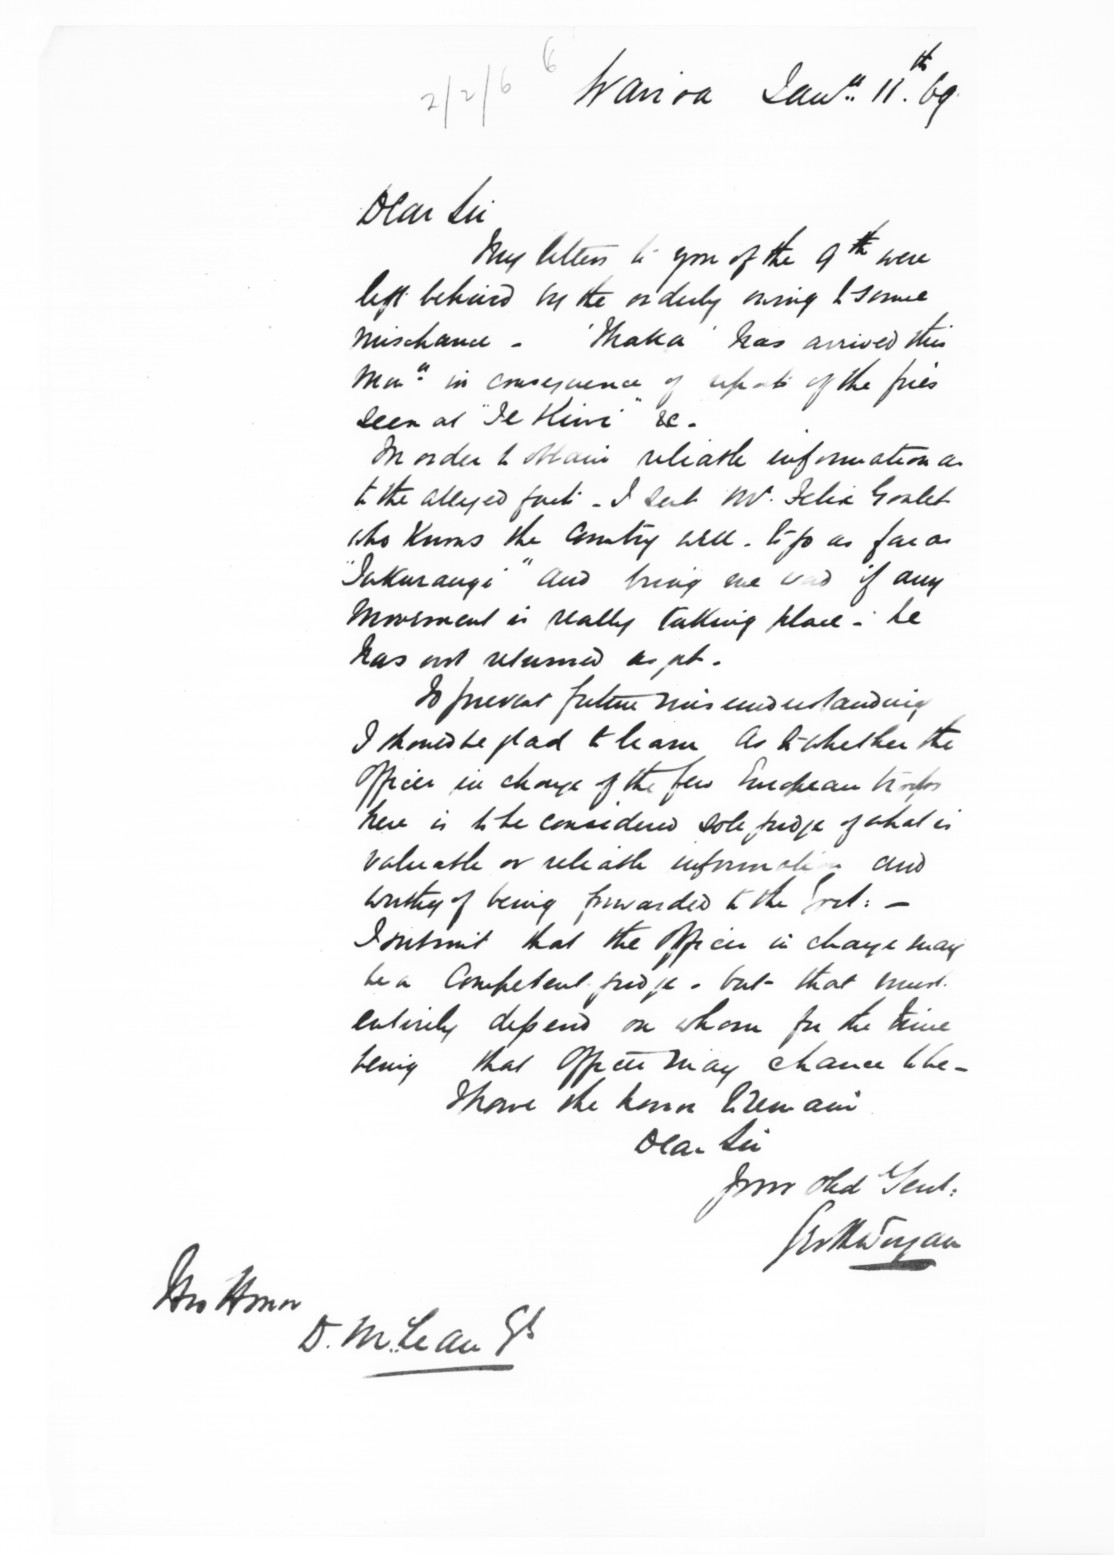 2/2/6 6
Wairoa Janu. 11th. 69.
Dear Sir
My letters to you of the 9th were
left behind by the orderly owing to some
mischance - 'Ihaka' has arrived this
in consequence of reports of the fires
seen at "Te Kiwi" &c.
In order to obtain reliable information as
to the alleged facts - I sent Mr. Felix Goulet
who knows the country well. to go as far as
"Tukurangi" and bring me word if any
movement is really taking place - he
has not returned as yet.
To prevent future misunderstanding
I should be glad to learn as to whether the
Officer in charge of the few European troops
here is to be considered sole judge of what is
valuable or reliable information and
worthy of being forwarded to the Govt: -
I submit that the Officer in charge may
be a competent judge - but that must
entirely depend on whom for the time
being that Officer may chance to be -
I have the honor to remain
Dear Sir
Your obed Servt:
His Honor
D. McLean